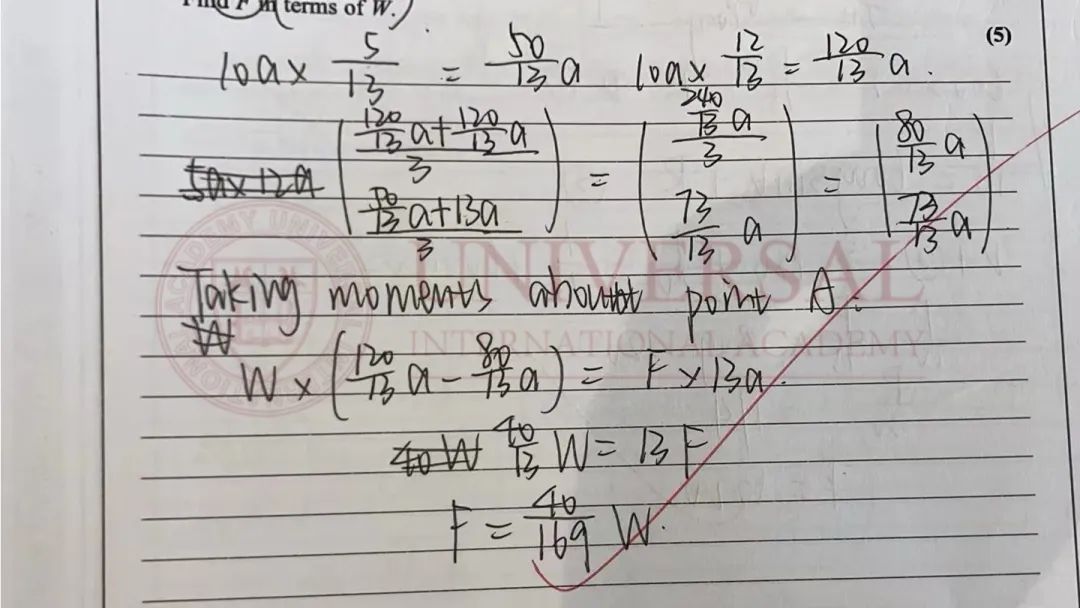 Find F in terms of W.
(5)
10a × 5/13 = 50/13 a 10a × 12/13 = 120/13 a.
5a × 12a ( (120/13 a + 120/13 a)/3 , (50/13 a + 13a)/3 ) = ( (240/13 a)/3 , 73/13 a ) = ( 80/13 a , 73/13 a )
Taking moments about point A:
W
W × (120/13 a - 80/13 a) = F × 13a.
40 W 40/13 W = 13 F
F = 40/169 W.
UNIVERSAL
INTERNATIONAL ACADEMY